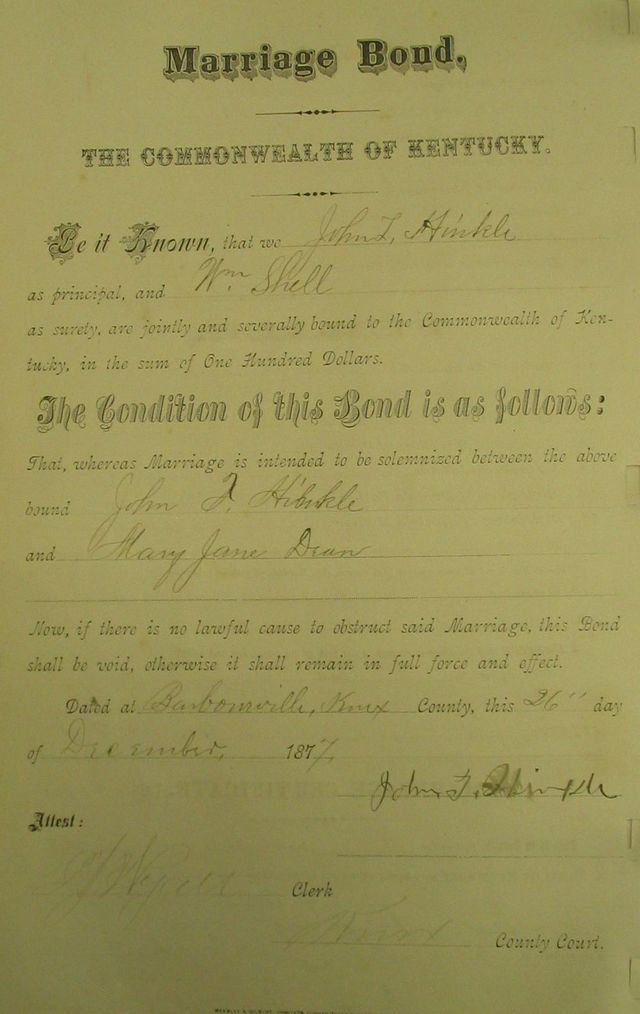 Marriage Bond.
THE COMMONWEALTH OF KENTUCKY.
Be it Known, that we John F. Hinkle
as principal, and Wm. Shell
as surety, are jointly and severally bound to the Commonwealth of Ken-
tucky, in the sum of One Hundred Dollars.
The Condition of this Bond is as follows:
That, whereas Marriage is intended to be solemnized between the above
bound John F. Hinkle
and Mary Jane Dean
Now, if there is no lawful cause to obstruct said Marriage, this Bond
shall be void, otherwise it shall remain in full force and effect.
Dated at Barbourville, Knox County, this 26" day
of December, 1877
John F. Hinkle
Attest:
Clerk
Knox County Court.